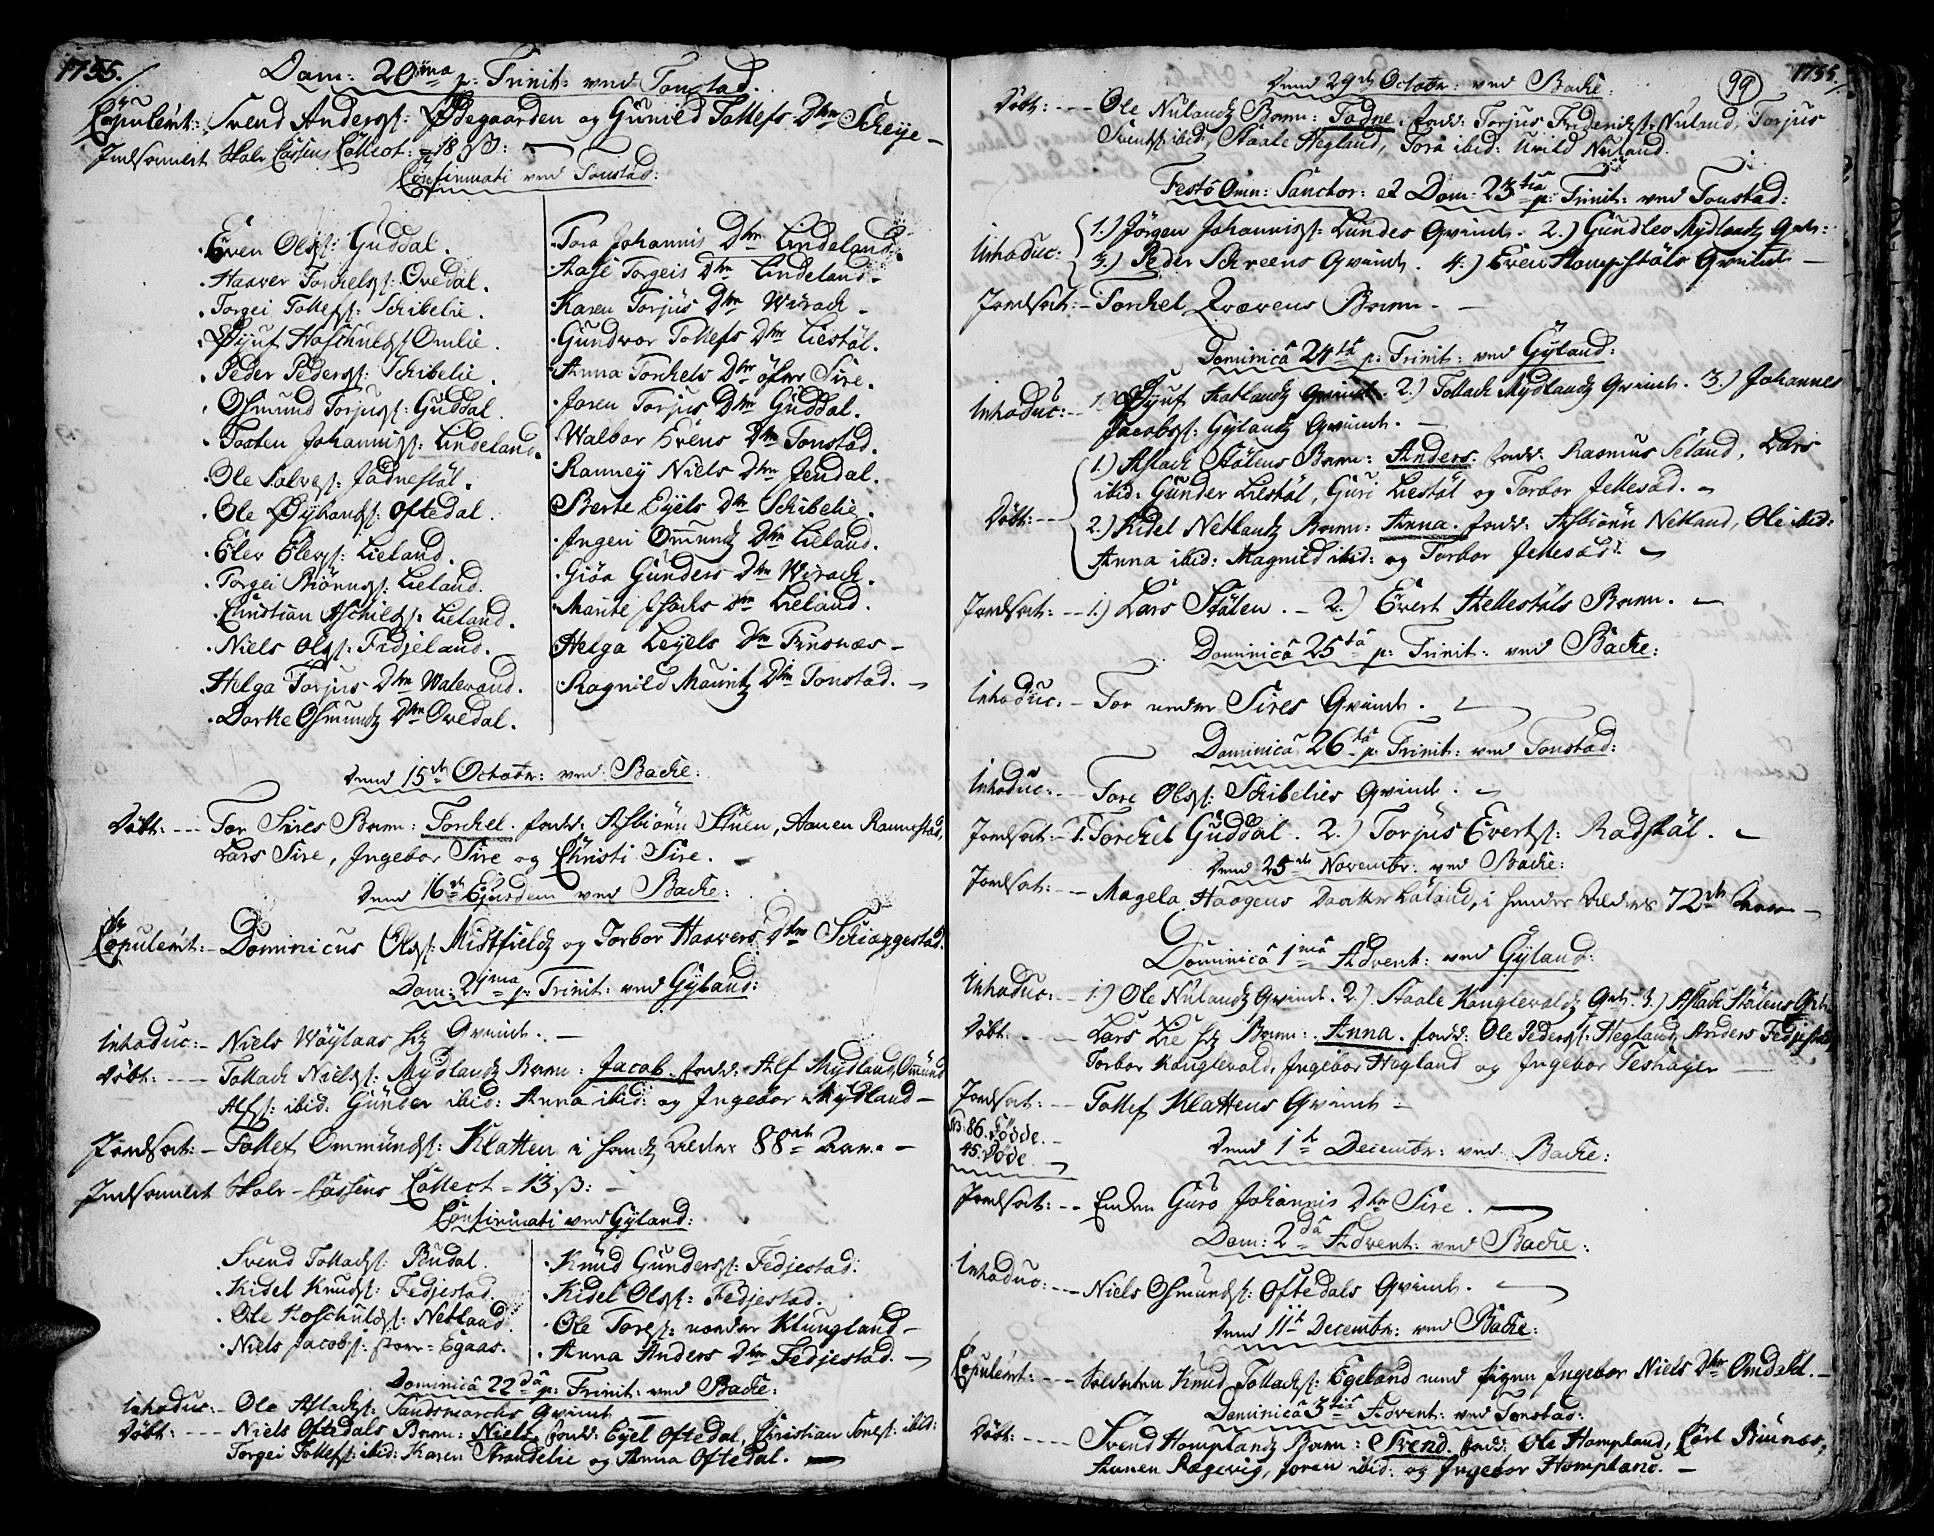 1755.
Dom: 20ma p: Trinit: ved Tonstad.
Copuleret: Svend Anders: Ødegaarden og Gunild Tollefs Dtr Scheije -
Indsamlet Skole Cassens Collect: = 18 ß: -
Confirmati ved Tonstad:
Even Ols: Guddal.
Haaver Torkels: Ovedal.
Torgei Tollefs: Schibelie.
Øyuf Hoschulds: Omlie.
Peder Peders: Schibelie.
Osmund Torjus: Guddal.
Taaten Johannis: Lindeland.
Ole Salves: Jødnestøl.
Ole Øyvans: Oftedal.
Elev Elevs: Lieland.
Torgei Biørns: Lieland.
Christian Aschilds: Lieland.
Niels Ols: Fidjeland.
Helga Torjus Dtr Waterand.
Dorthe Osmunds Dtr Ovedal.
Tora Johannis Dtr Lindeland.
Aase Torgeis Dtr Lindeland.
Karen Torjus Dtr Wirach.
Gundvor Tollefs Dtr Liestøl.
Anna Torkels Dtr øfre Sire.
Joren Torjus Dtr Guddal.
Walbor Evens Dtr Tonstad.
Ranney Niels Dtr Jendal.
Berte Eyels Dtr Schibelie.
Ingeri Omunds Dtr Lieland.
Giøa Gunders Dtr Wirach.
Marite Isachs Dtr Lieland.
Helga Leyels Dtr Finsnæs -
Ragnild Mauritz Dtr Tonstad. -
Dend 15de Octobr: ved Backe:
Døbt: --- Tor Sires Barn: Torckel. fadd: Asbiørn Stuen, Aanen Rannestad,
Lars Sire, Ingebor Sire og Christi Sire. -
Dend 16de Ejusdem ved Backe:
Copuleret: - Dominicus Ols: Midtfields og Torbor Haavers Dtr Schiæggestad.
Dom: 21ma p: Trinit: ved Gyland:
Introduc: - Niels Wøylaas Gvind. -
Døbt: ---- Tollach Niels: Mydlands Barn: Jacob. fadd: Alf Mydland, Omund
Alfs: ibid: Gunder ibid: Anna ibid: og Ingebor Mydland -
Jordfæst: - Tollef Ommunds: Klatten i hands Alders 88de Aar. -
Indsamlet Skole-Cassens Collect = 13 ß: -
Confirmati ved Gyland:
Svend Tollachs: Budal.
Kidel Knuds: Fedjestad.
Ole Hoschulds: Netland.
Niels Jacobs: store-Egaas.
Knud Gunders: Fedjestad.
Kidel Ols: Fedjestad.
Ole Tores: nordre Klungland -
Anna Anders Dtr Fedjestad. -
Dominica 22da p: Trinit: ved Backe:
Introduc: - Ole Aslachs: Sandsmarchs Gvind -
Døbt: --- Niels Oftedals Barn: Niels. fadd: Eyel Oftedal, Christian Tores: ibid:
Torgei Tollefs: ibid: Karen Strandelie og Anna Oftedal. -
1755.
99
Dend 29de Octobr: ved Backe:
Døbt: --- Ole Nulands Barn: Tadne. fadd: Torjus Friderichs: Nuland, Torjus
Svends: ibid, Staale Hegland, Tora ibid: Uvild Nuland.
Festo Omn: Sanctor: et Dom: 23tia p: Trinit: ved Tonstad:
Introduc: 1.) Jørgen Johannis: Lundes Gvind. 2.) Gundlev Mydlands Gvind:
3.) Peder Schreens Gvind. 4.) Even Hompstøls Gvind -
Jordfæst: - Torckel Qvævens Barn. -
Dominica 24ta p: Trinit: ved Gyland:
Introduc: -- 1.) Øyuf Natlands Gvind. 2.) Tollach Mydlands Gvind. 3.) Johannes
Jacobs: Gylands Gvind. -
Døbt: -- 1.) Aslach Stølens Barn: Anders. fadd: Rasmus Seland, Lars
ibid: Gunder Liestøl, Guri Liestøl og Torbor Jellesad. -
2.) Kidel Netlands Barn: Anna. fadd: Asbiørn Netland, Ole ibid:
Anna ibid: Magnild ibid: og Torbor Jellesad. -
Jordfæst: -- 1.) Lars Stølen. - 2.) Evert Hellestøls Barn. -
Dominica 25ta p: Trinit: ved Backe:
Introduc: - Tor nedre Sires Gvind. -
Dominica 26ta p: Trinit: ved Tonstad:
Introduc: -- Tore Ols: Schibelies Gvind. -
Jordfæst: - 1. Torchel Guddal. 2.) Torjus Everts: Rødstøl. -
Dend 25de Novembr: ved Backe:
Jordfæst: -- Magela Haagens Daatter Løland, i hendes Alders 72de Aar -
Dominica 1ma Advent: ved Gyland:
Introduc: - 1.) Ole Nulands Gvind. 2.) Staale Konglevolds Gvind. 3.) Aslach Stølens Gvind:
Døbt: --- Lars Lie Barn: Anna. fadd: Ole Peders: Hegland, Anders Fedjestad,
Torbor Konglevold, Ingebor Hegland og Ingebor Teshager -
Jordfæst: -- Tollef Klattens Gvind -
NB: 86. Fødde.
45. Døde.
Dend 1te Decembr: ved Backe:
Jordfæst: -- Enken Guro Johannis Dtr Sire. -
Dom: 2da Advent: ved Backe:
Introduc: -- Niels Osmunds: Oftedals Gvind. -
Dend 11te Decembr: ved Backe:
Copuleret: --- Soldaten Knud Tollachs: Egeland med Pigen Ingebor Niels Dtr Omdal. -
Dominica 3tia Advent: ved Tonstad:
Døbt: ---- Svend Homplands Barn: Svend. fadd: Ole Hompland, Carl Biunes,
Aanen Rægevig, Joren ibid: og Ingebor Hompland. -